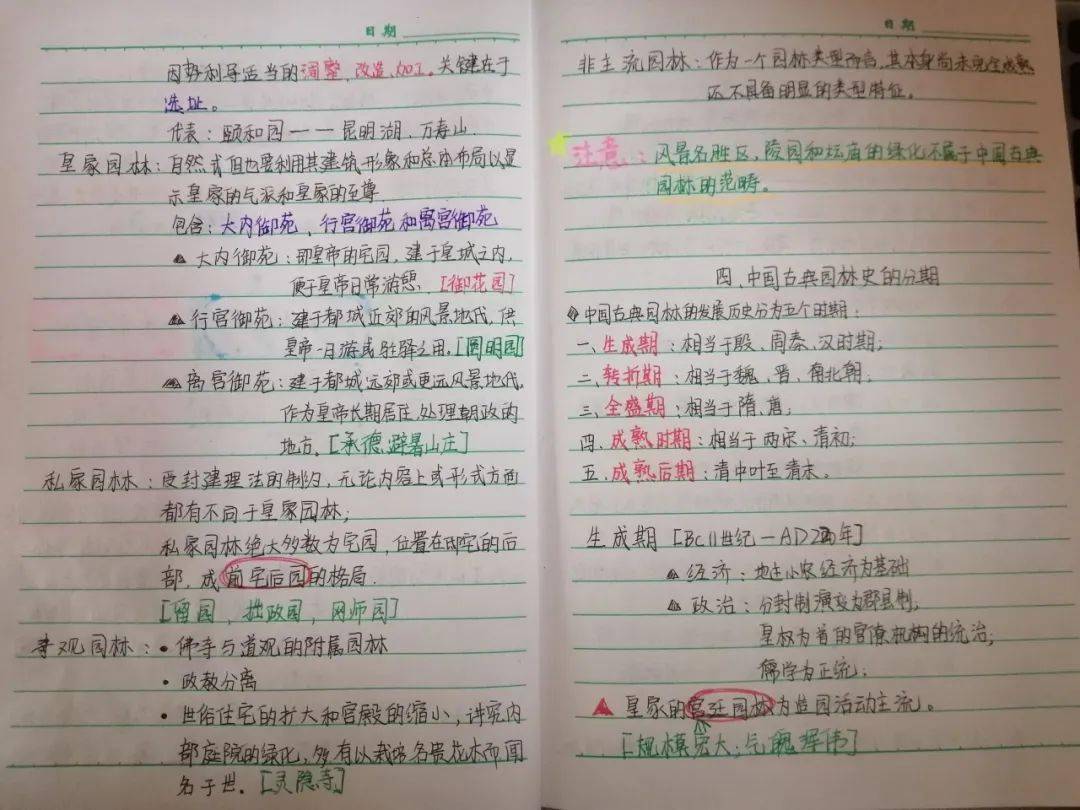 日期
因势利导适当的调整、改造、加工。关键在于
选址。
代表：颐和园——昆明湖、万寿山.
皇家园林：自然式但也要利用其建筑形象和总体布局以显
示皇家的气派和皇家的至尊
包含：大内御苑、行宫御苑和离宫御苑
大内御苑：即皇帝的宅园，建于皇城之内，
便于皇帝日常游憩.［御花园］
行宫御苑：建于都城近郊的风景地代，供
皇帝一日游或驻驿之用.［圆明园］
离宫御苑：建于都城远郊或更远风景地代，
作为皇帝长期居住、处理朝政的
地方.［承德避暑山庄］
私家园林：受封建理法的制约，无论内容上或形式方面
都有不同于皇家园林；
私家园林绝大多数为宅园，位置在邸宅的后
部，成前宅后园的格局.
［留园，拙政园，网师园］
寺观园林：•佛寺与道观的附属园林
•政教分离
•世俗住宅的扩大和宫殿的缩小，讲究内
部庭院的绿化，多有以栽培名贵花木而闻
名于世.［灵隐寺］
日期
非主流园林：作为一个园林类型而言，其本身尚未完全成熟
还不具备明显的类型特征。
注意：风景名胜区，陵园和坛庙的绿化不属于中国古典
园林的范畴。
四、中国古典园林史的分期
中国古典园林的发展历史分为五个时期：
一、生成期：相当于殷、周秦、汉时期；
二、转折期：相当于魏、晋、南北朝；
三、全盛期：相当于隋、唐；
四、成熟时期：相当于两宋、清初；
五、成熟后期：清中叶至清末。
生成期［BC11世纪—AD220年］
经济：地主小农经济为基础
政治：分封制演变为郡县制，
皇权为首的官僚机构的统治；
儒学为正统；
皇家的宫廷园林为造园活动主流。
［规模宏大；气魄浑伟］